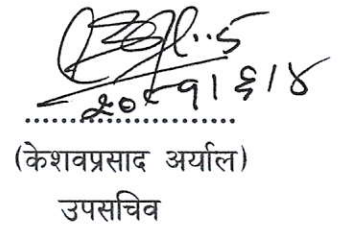 २०८१।६।४
(केशवप्रसाद अर्याल)
उपसचिव